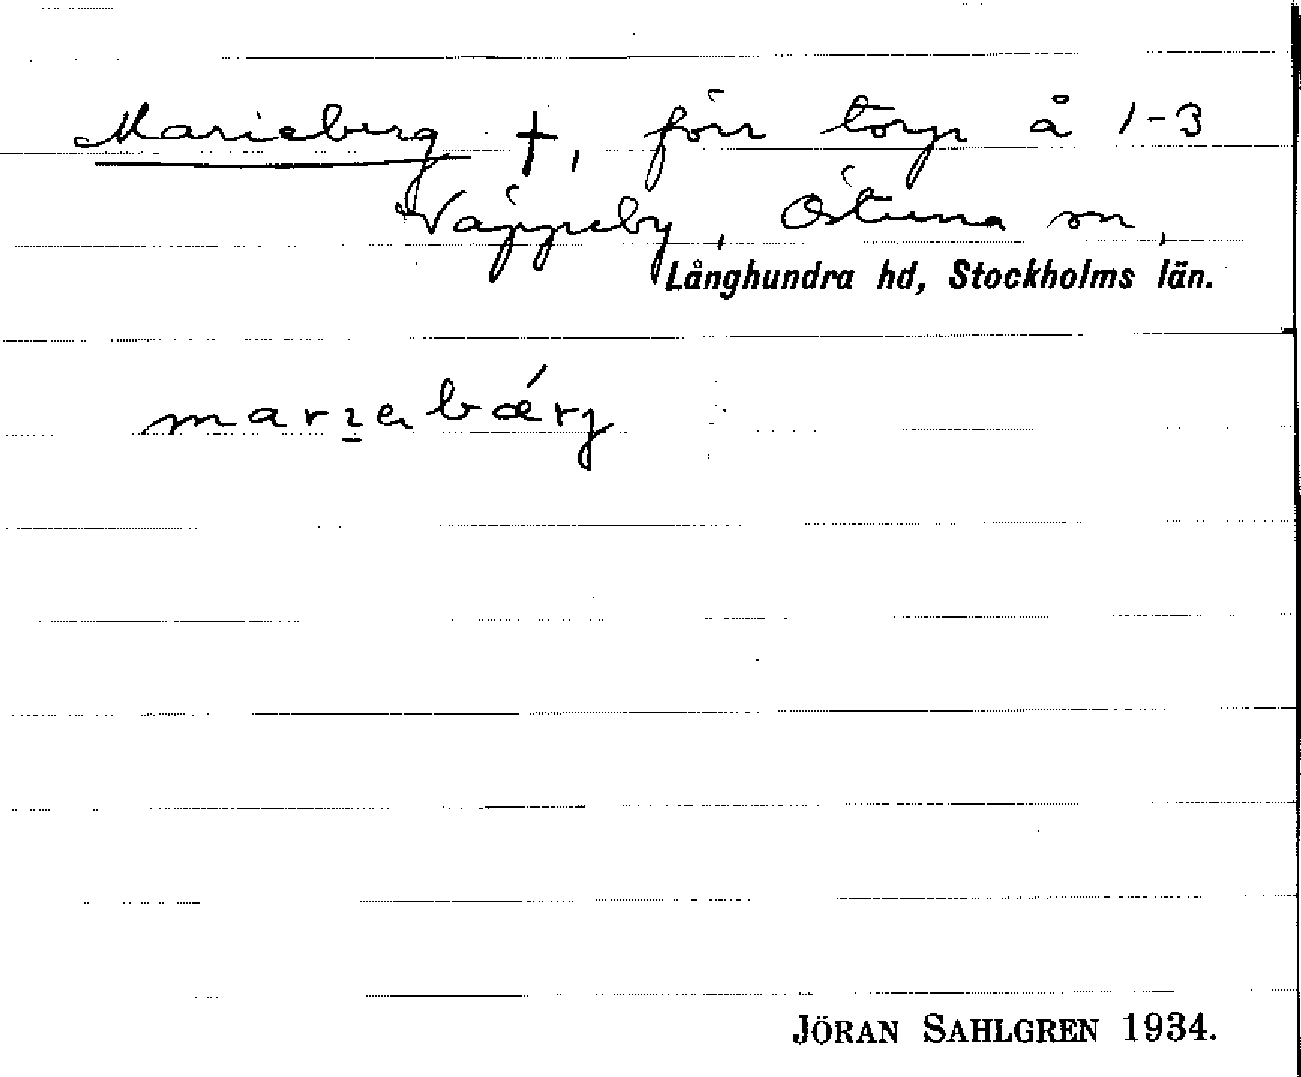 Marieberg †, förr torp å 1-3
Väppeby, Östuna sn,
Långhundra hd, Stockholms län.
marɩ̱abǽrj
JÖRAN SAHLGREN 1934.